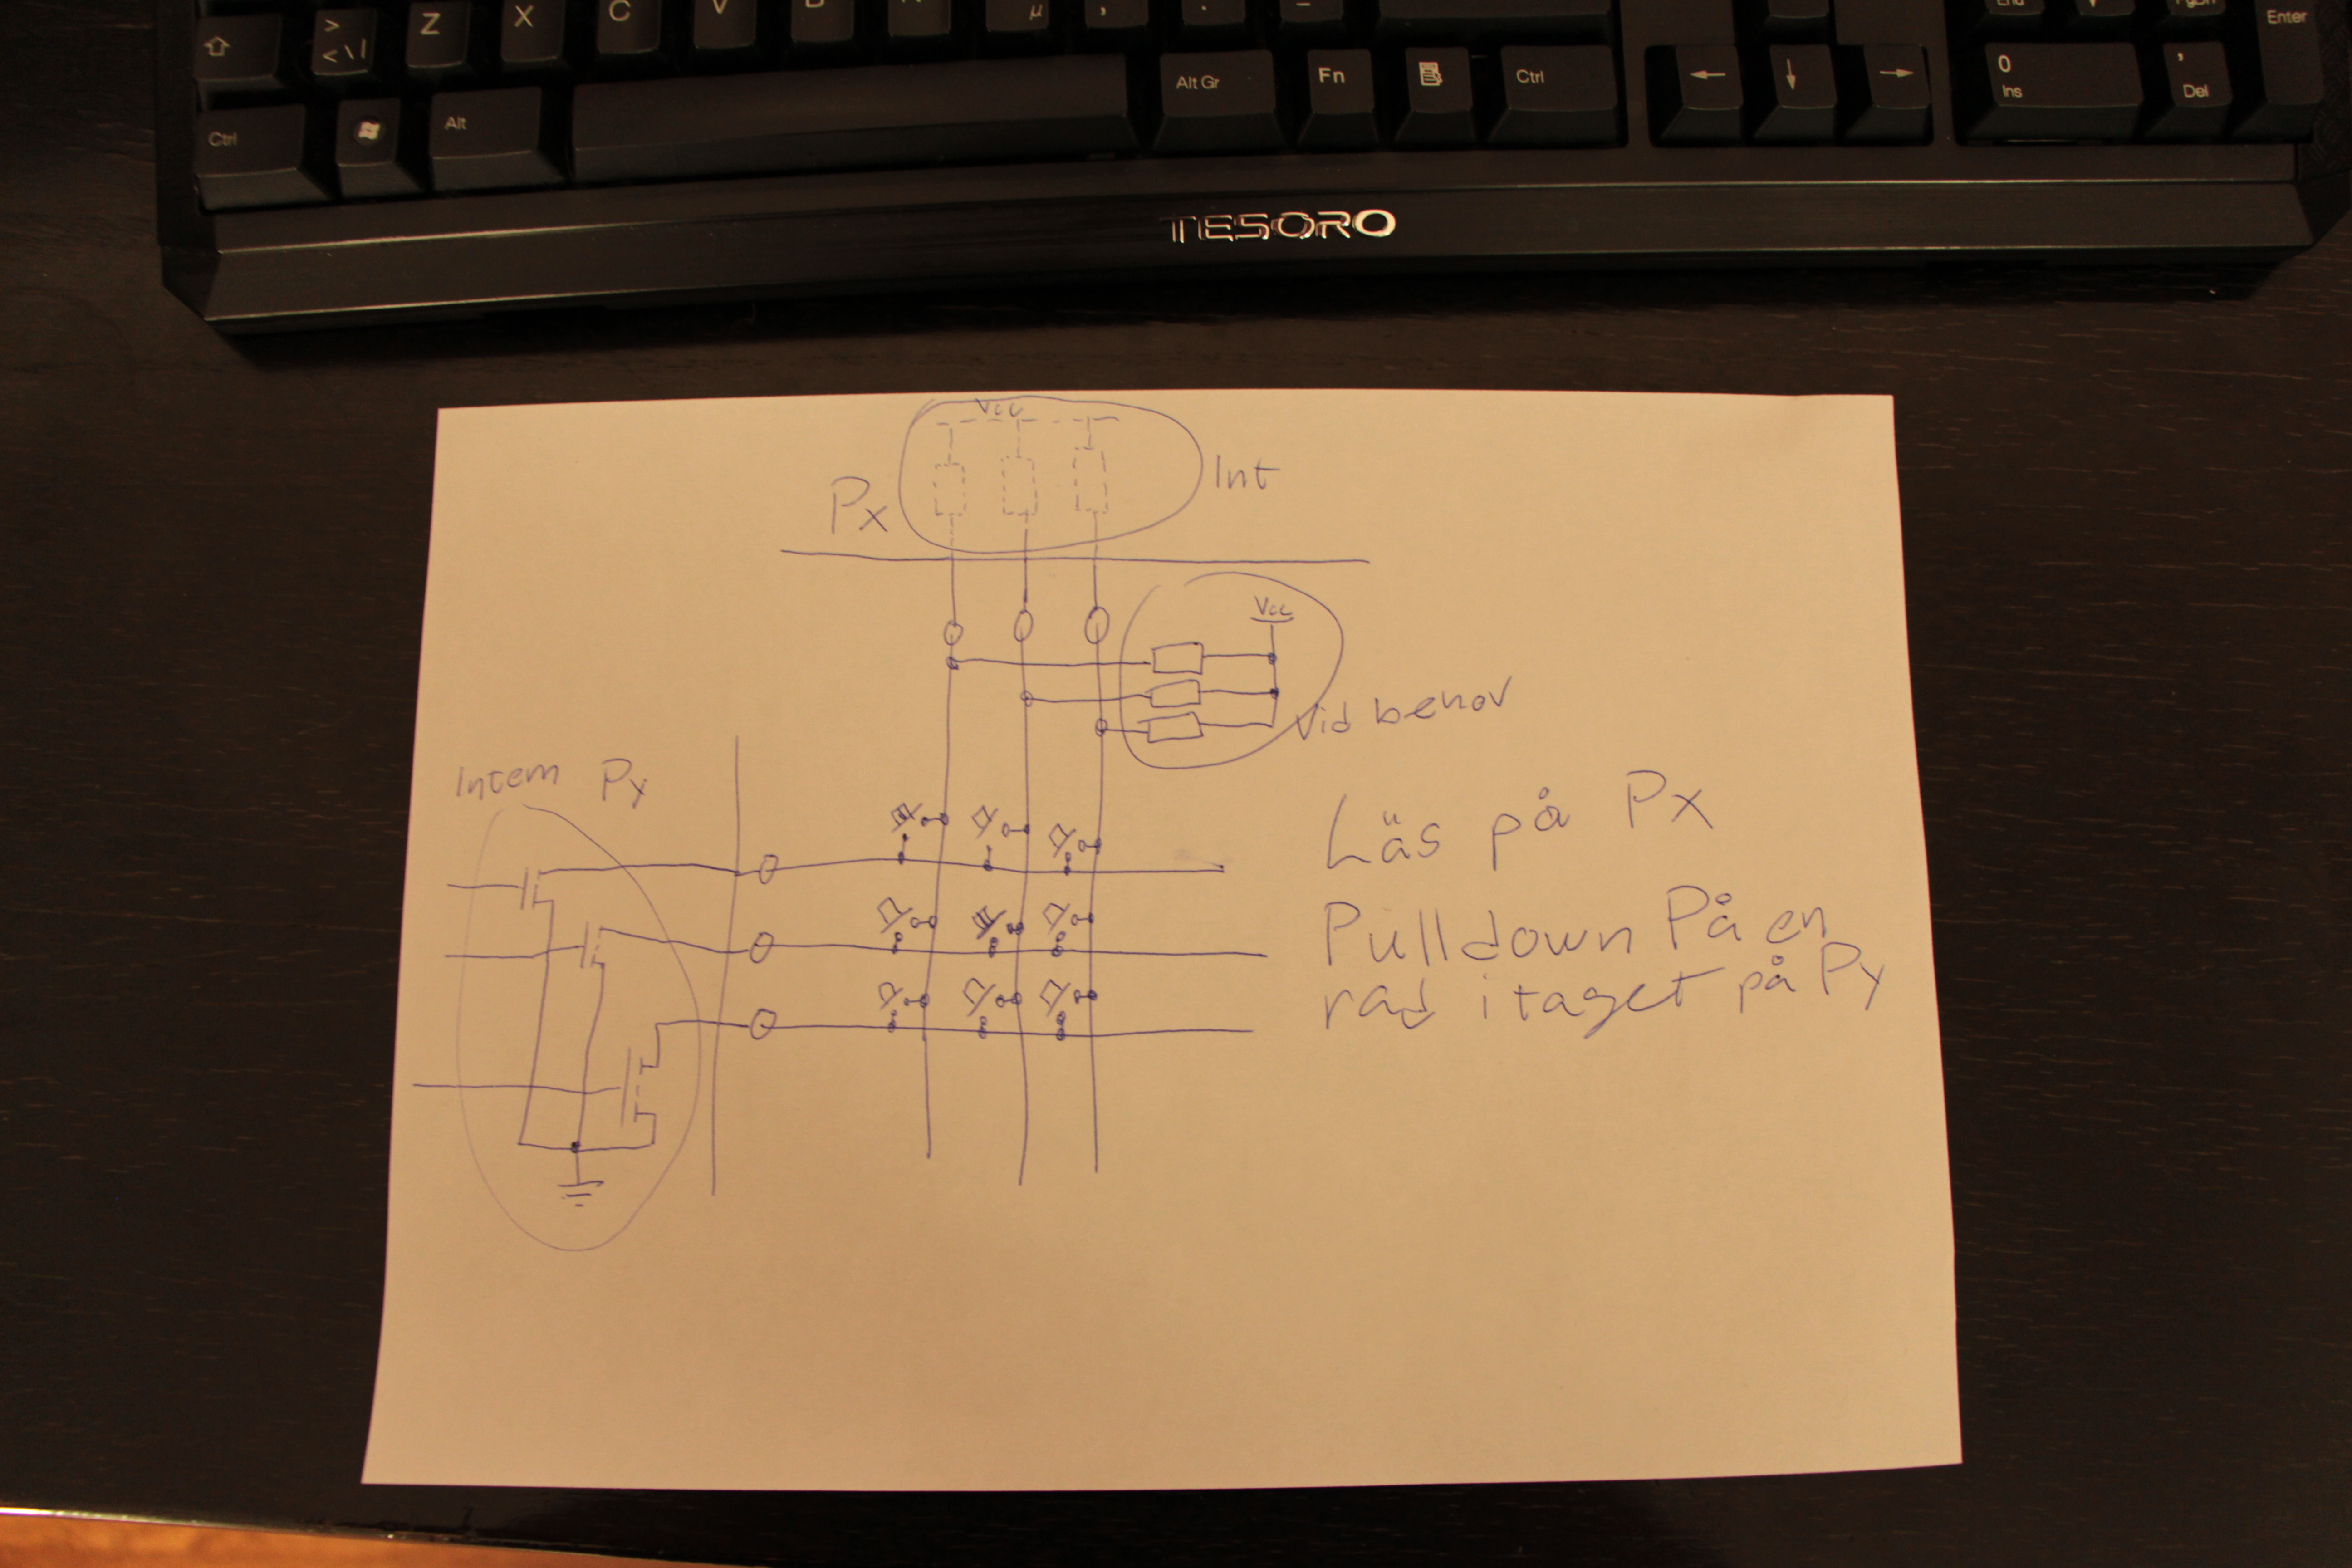 > Z X C V µ , . - End PgDn Enter
< \ |
Ctrl Alt Alt Gr Fn Ctrl 0 ,
Ins Del
TESORO
Vcc
Px Int
Vcc
Vid behov
Intern Py
Läs på Px
Pulldown På en
rad i taget på Py